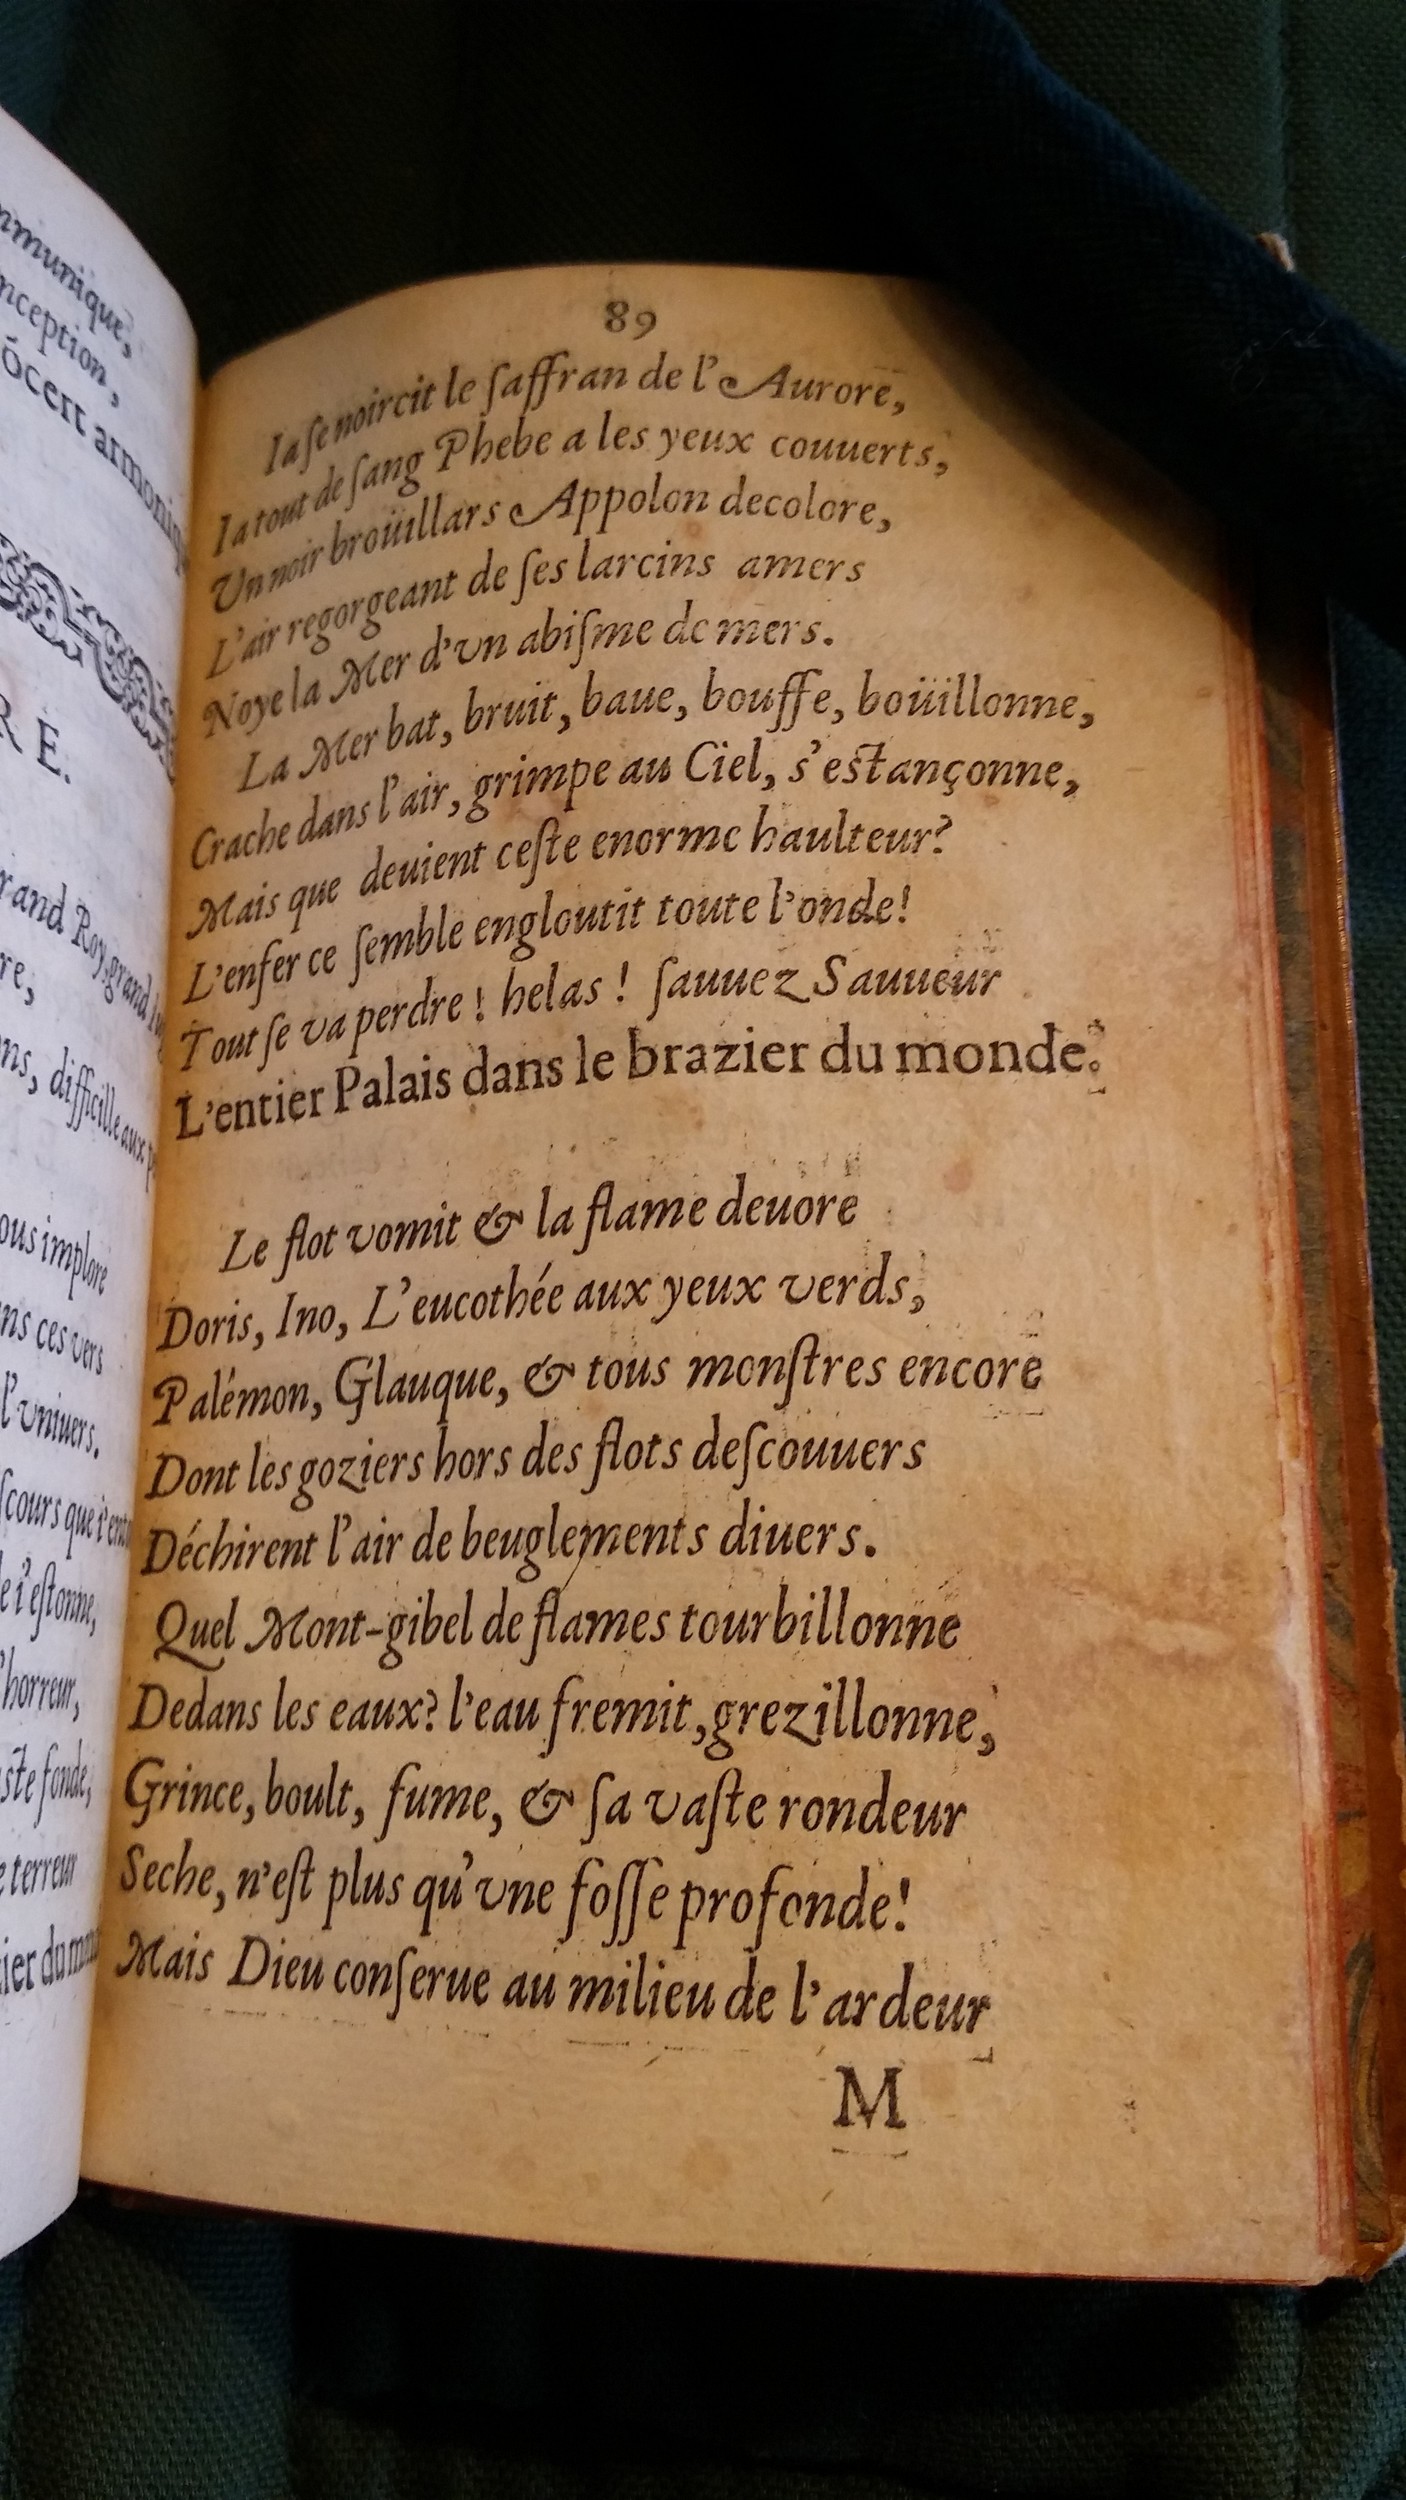 mmunique,
nception,
ócert armoniq
R E.
rand Roy, grand
re,
ns, difficille aux
ous implore
ns ces vers
l'vniuers.
ſcours que i'ent
e i'eſtonne,
'horreur,
ſte fonde,
e terreur
ier du mon
89
Ia ſe noircit le ſaffran de l'Aurore,
Ia tout de ſang Phebe a les yeux couuerts,
Vn noir broüillars Appolon decolore,
L'air regorgeant de ſes larcins amers
Noye la Mer d'vn abiſme de mers.
La Mer bat, bruit, baue, bouffe, boüillonne,
Crache dans l'air, grimpe au Ciel, s'eſtançonne,
Mais que deuient ceſte enorme haulteur?
L'enfer ce ſemble engloutit toute l'onde!
Tout ſe va perdre! helas! ſauuez Sauueur
L'entier Palais dans le brazier du monde.
Le flot vomit & la flame deuore
Doris, Ino, L'eucothée aux yeux verds,
Palémon, Glauque, & tous monſtres encore
Dont les goziers hors des flots deſcouuers
Déchirent l'air de beuglements diuers.
Quel Mont-gibel de flames tourbillonne
Dedans les eaux? l'eau fremit, grezillonne,
Grince, boult, fume, & ſa vaſte rondeur
Seche, n'eſt plus qu'vne foſſe profonde!
Mais Dieu conſerue au milieu de l'ardeur
M